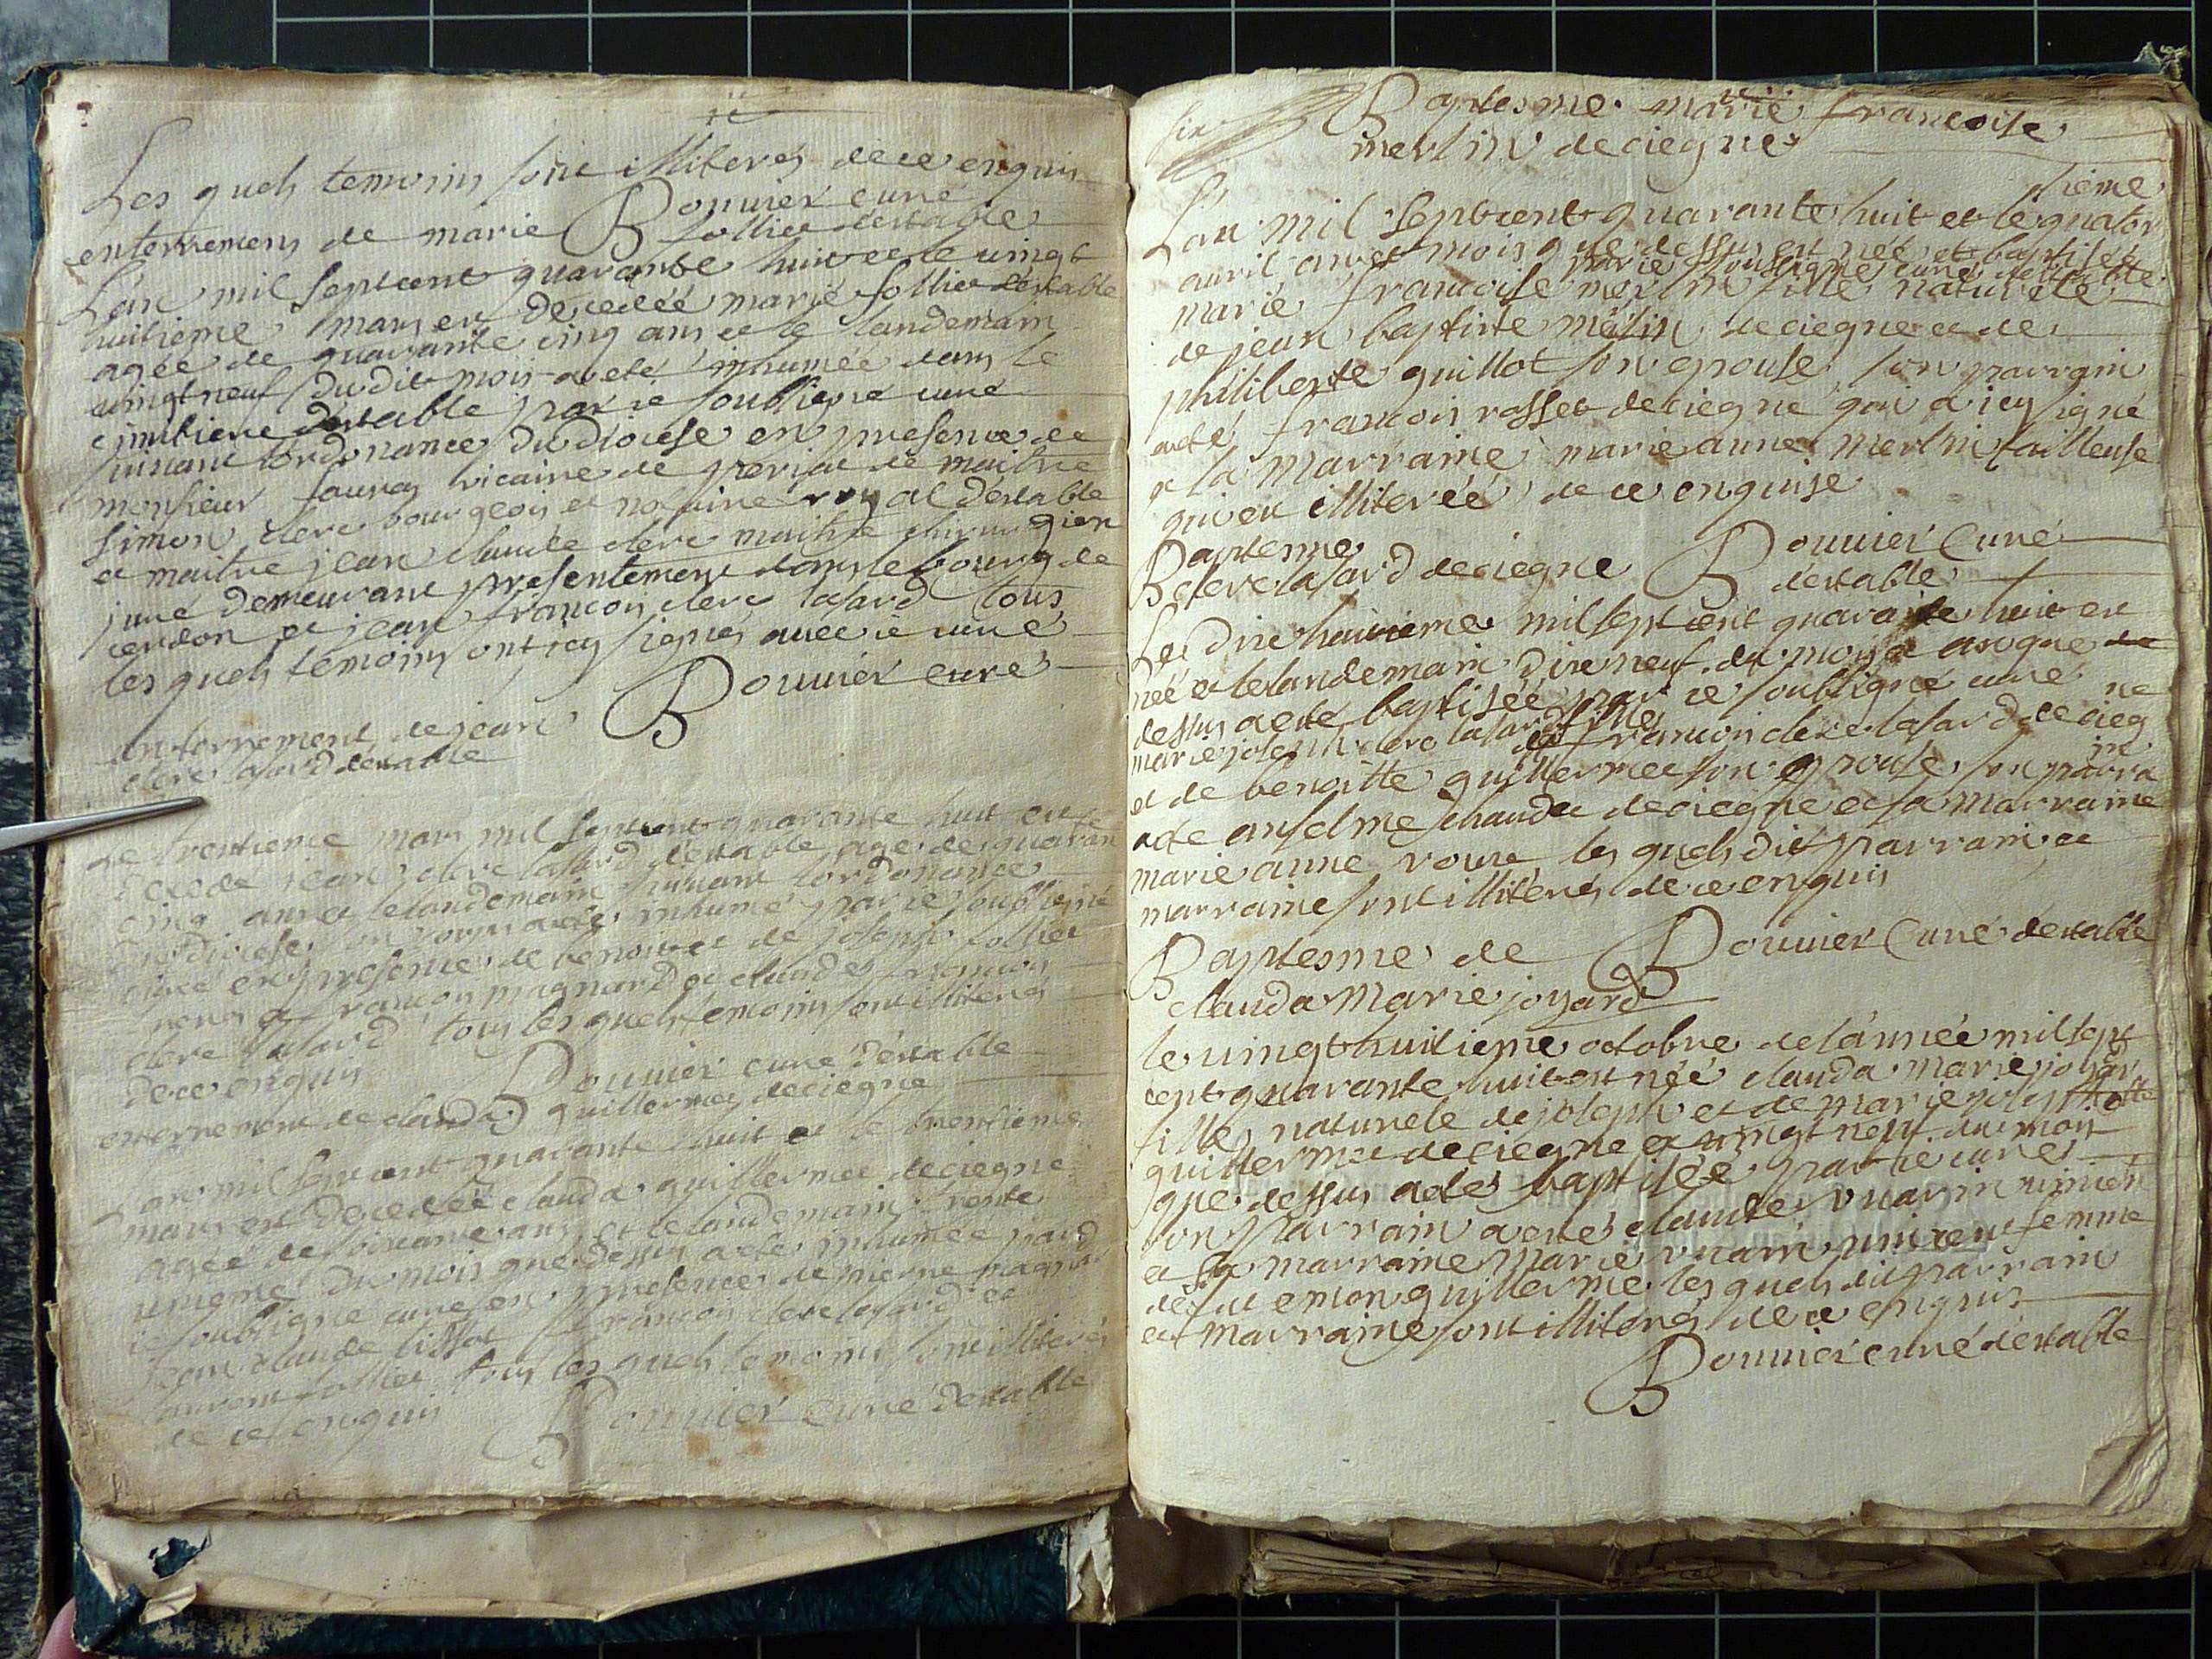 Les quels temoins sont illiterés de ce enquis
Bouvier curé
enterrement de marie sollier destable
Lan mil septcent quarante huit et le vingt
huitieme mars est decedéé marie sollier destable
agéé de quarante cinq ans et le landemain
vingt neuf dudit mois a eté inhuméé dans le
cimitiere destable par ie soubsigné curé
suivant lordonnance du diocese en presence de
monsieur vicaire de de maitre
simon clerc bourgeois et notaire royal destable
et maitre jean claude clerc maitre chirurgien
juré demeurant presentement dans le bourg de
cerdon et jean francois clerc lasard tous
les quels temoins ont icy signés avec ie curé
Bouvier curé
enterrement de jean
clerc lasard destable
Le trentieme mars mil septcent quarante huit est
decedé jean clerc lasard destable agé de quaran
cinq ans et le landemain suivant lordonnance
du diocese son corps a eté inhumé par ie soubsigné
curé en presence de benoit et de joseph sollier
francois magnard et claude francois
clerc lasard tous les quels temoins sont illiterés
de ce enquis
Bouvier curé destable
enterrement de claudaz guillermet deciegne
Lan mil septcent quarante huit et le trentieme
mars est decedéé clauda guillermet deciegne
agéé de ans et le landemain trente
unieme du mois que dessus a eté inhuméé par
ie soubsigné curé en presence de pierre magnard
jean claude tissot francois clerc lasard et
laurent sollier tous les quels temoins sont illiterés
de ce enquis
Bouvier curé destable
six
Baptesme marie francoise
merlin deciegne
sieme
Lan mil septcent quarante huit et le quator
avril an et mois que dessus est néé et baptiséé
par ie soussigné curé destable
marie francoise merlin fille naturele
de jean baptiste merlin deciegne et de
philiberte guillot son epouse son parrain
a eté francois rosset deciegne qui a icy signé
et la marraine marie anne merlin tailleuse
qui est illiteréé de ce enquise
Baptesme Bouvier Curé
clerc lasard deciegne destable
Le dixe huitieme mil sept cent quarante huit est
néé et le landemain dixe neuf du mois a que
dessus a eté baptiséé par ie soubsigné curé
marie joseph clerc lasard fille ne
de francois clerc lasard decieg
et de benoitte guillermet son epouse son parra
in
a eté anselme chaudet deciegne et sa marraine
marie anne les quels dit parrain et
marraine sont illiterés de ce enquis
Baptesme de Bouvier Curé destable
clauda Marie joyard
le vingt huitieme octobre de lannéé mil sept
cent quarante huit est néé clauda marie joyar
fille naturele de joseph et de marie josephte
guillermet deciegne et vingt neuf du mois
que dessus a eté baptiséé par ie curé
son parrain a eté claude vuarin
et sa marraine marie vuarin femme
guillerme les quels dit parrain
et marraine sont illiterés de ce enquis
Bouvier curé destable